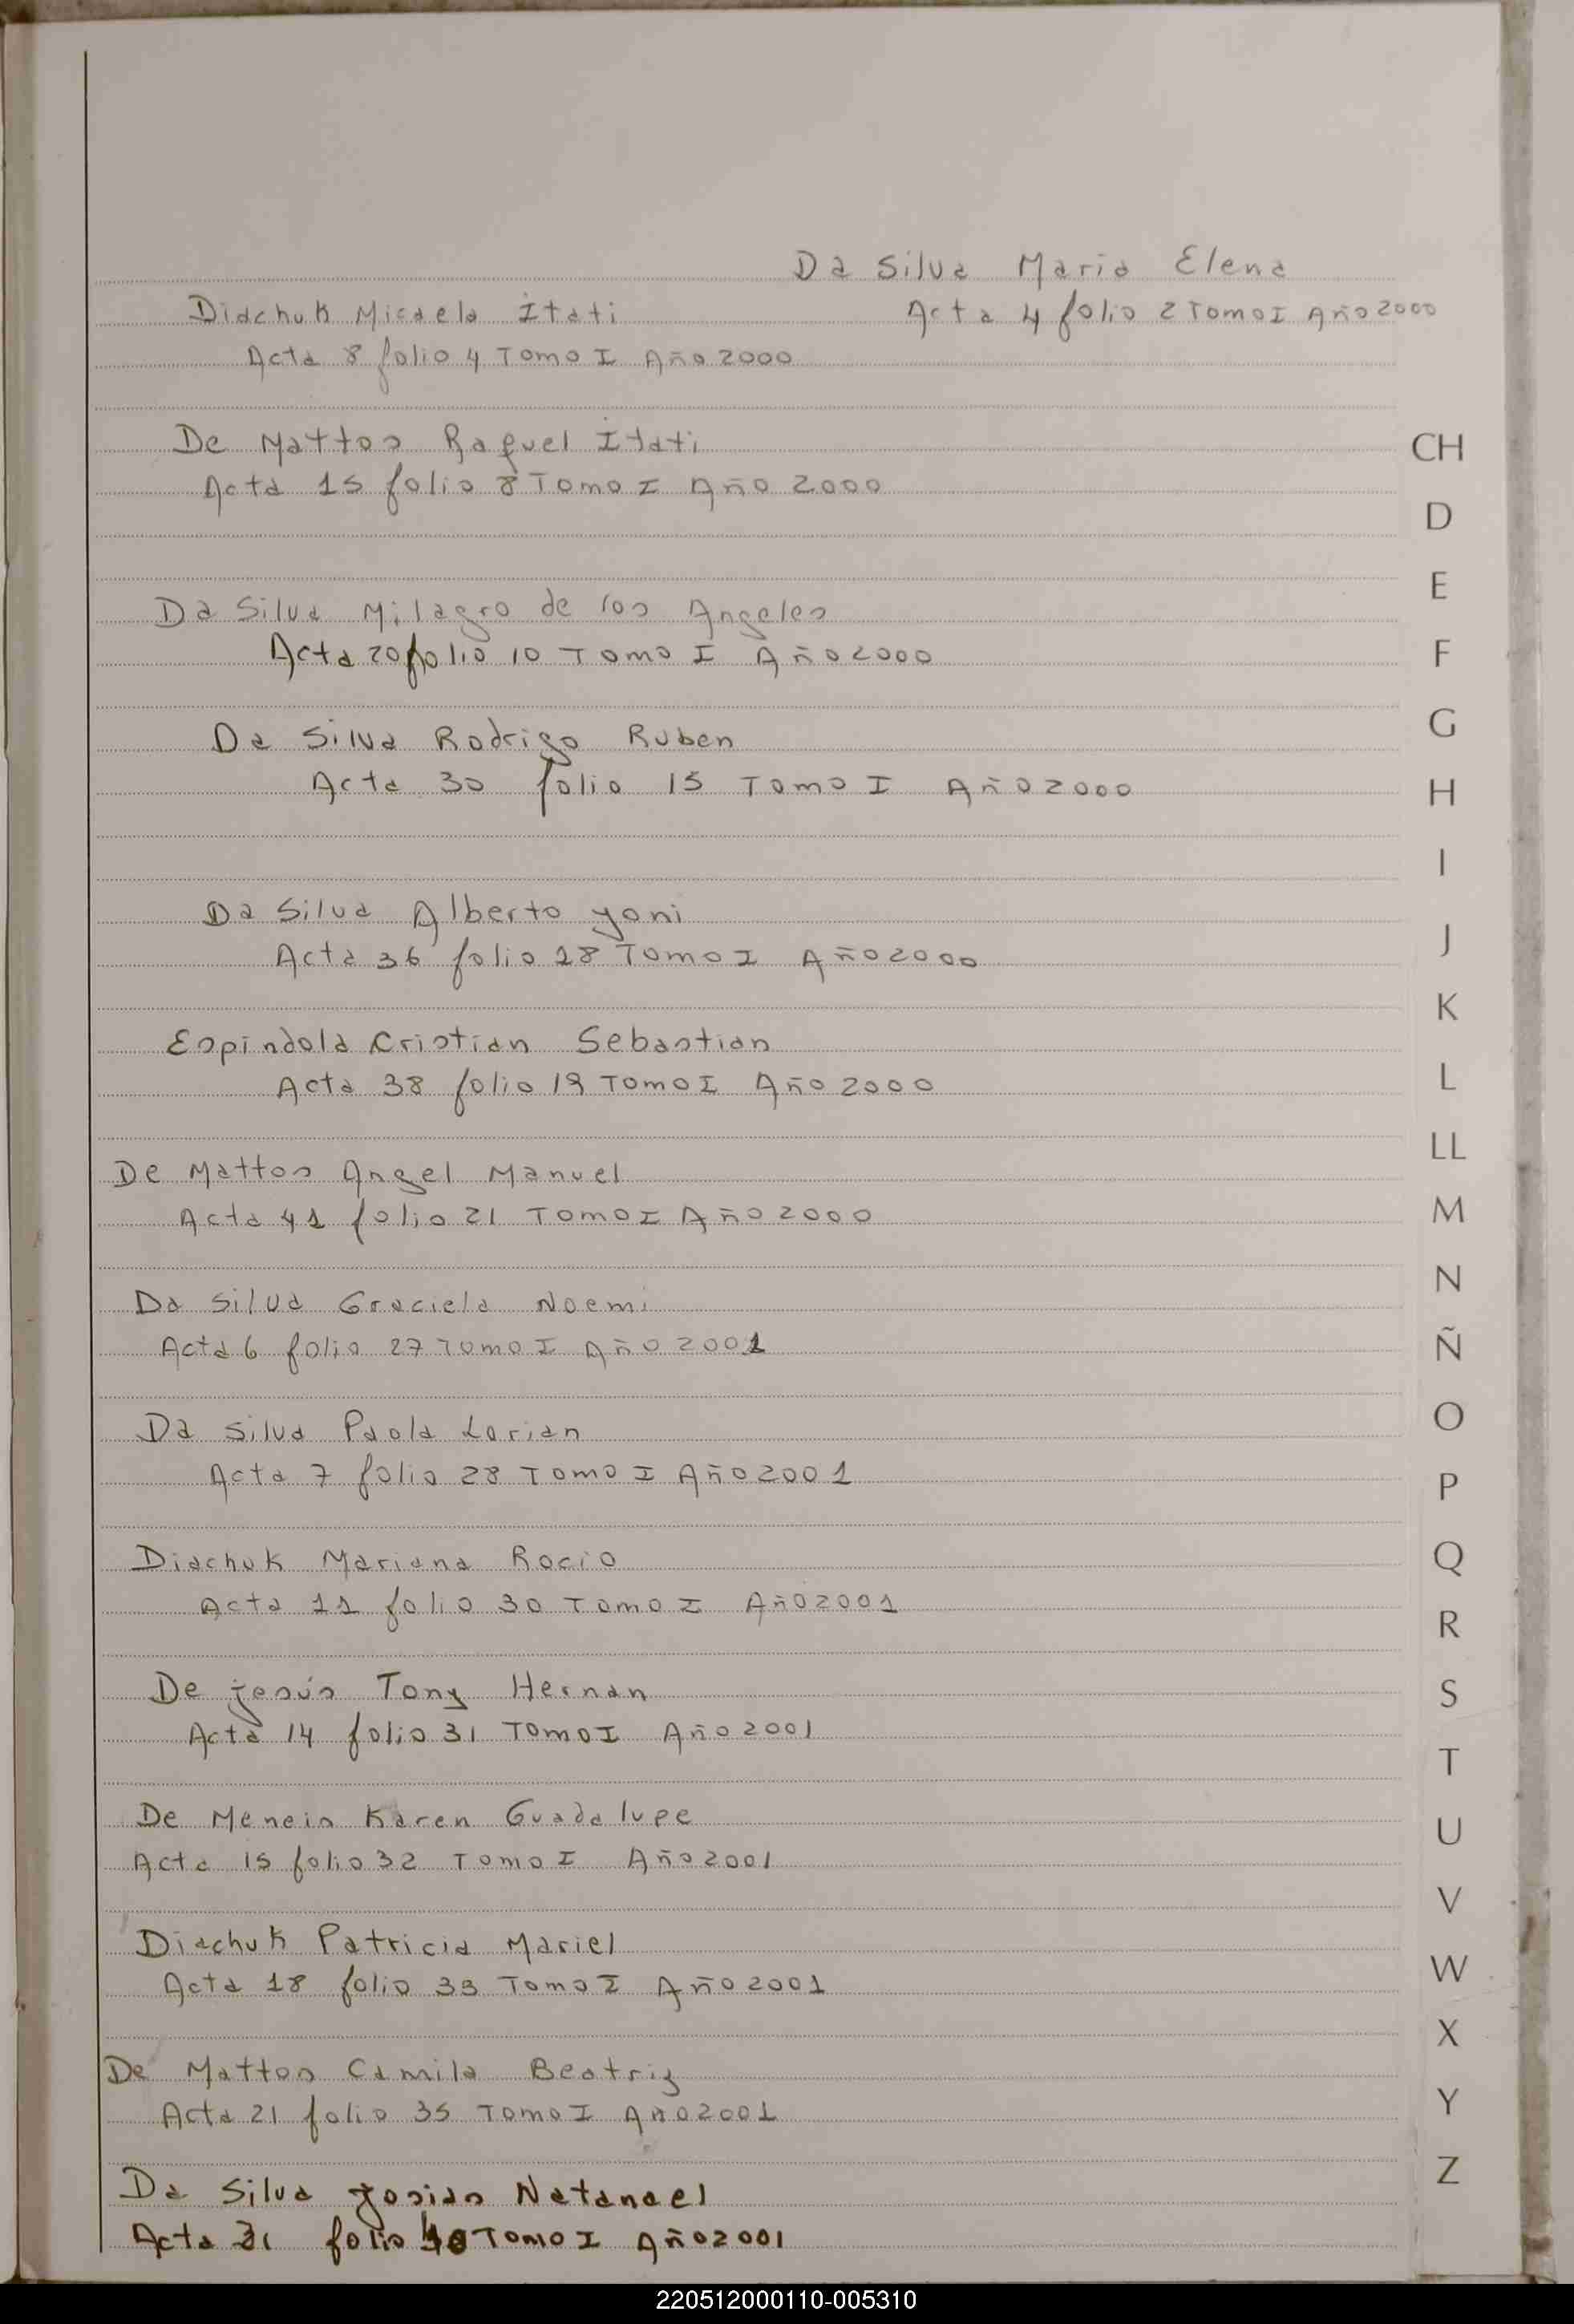 Da Silva Maria Elena
Acta 4 folio 2 Tomo I Año 2000
Diachuk Micaela Itati
Acta 8 folio 4 Tomo I Año 2000
De Mattos Raquel Itati
Acta 15 folio 8 Tomo I Año 2000
Da Silva Milagro de los Angeles
Acta 20 folio 10 Tomo I Año 2000
Da Silva Rodrigo Ruben
Acta 30 folio 15 Tomo I Año 2000
Da Silva Alberto Yoni
Acta 36 folio 18 Tomo I Año 2000
Espindola Cristian Sebastian
Acta 38 folio 19 Tomo I Año 2000
De Mattos Angel Manuel
Acta 41 folio 21 Tomo I Año 2000
Da Silva Graciela Noemi
Acta 6 folio 27 Tomo I Año 2001
Da Silva Paola Lorian
Acta 7 folio 28 Tomo I Año 2001
Diachuk Mariana Rocio
Acta 11 folio 30 Tomo I Año 2001
De Jesús Tony Hernan
Acta 14 folio 31 Tomo I Año 2001
De Meneis Karen Guadalupe
Acta 15 folio 32 Tomo I Año 2001
Diachuk Patricia Mariel
Acta 18 folio 33 Tomo I Año 2001
De Mattos Camila Beatriz
Acta 21 folio 35 Tomo I Año 2001
Da Silva Josias Natanael
Acta 31 folio 40 Tomo I Año 2001
CH
D
E
F
G
H
I
J
K
L
LL
M
N
Ñ
O
P
Q
R
S
T
U
V
W
X
Y
Z
220512000110-005310